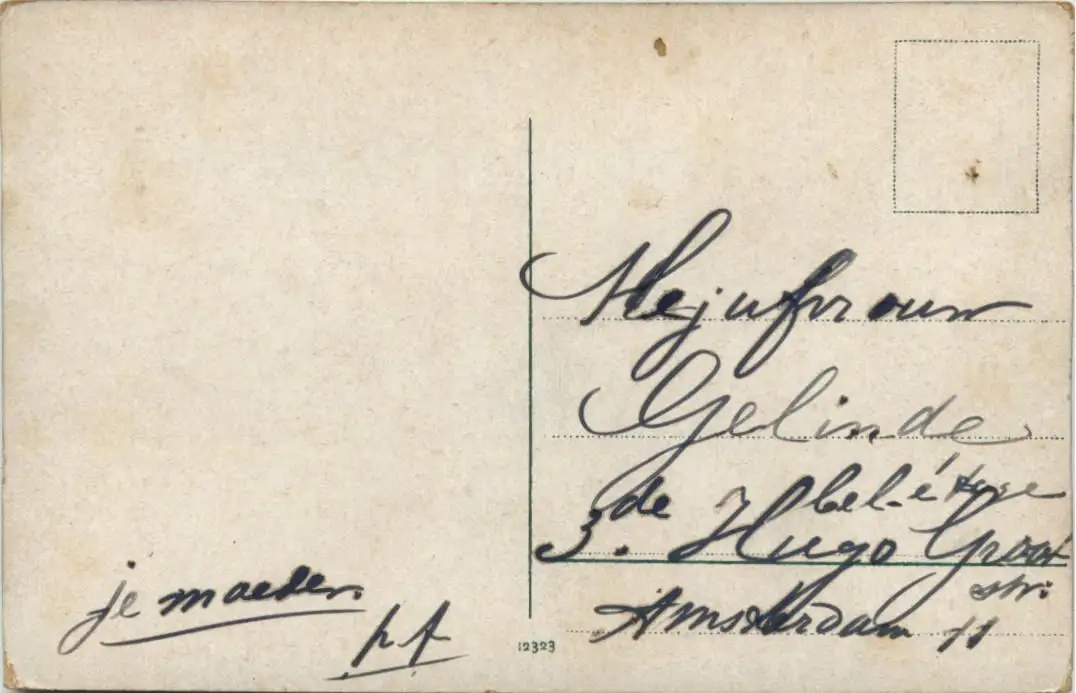 Mejufvrouw
Gelinde
bel-étage
3de Hugo Groot
str:
Amsterdam 11
je moeder.
pf
12323